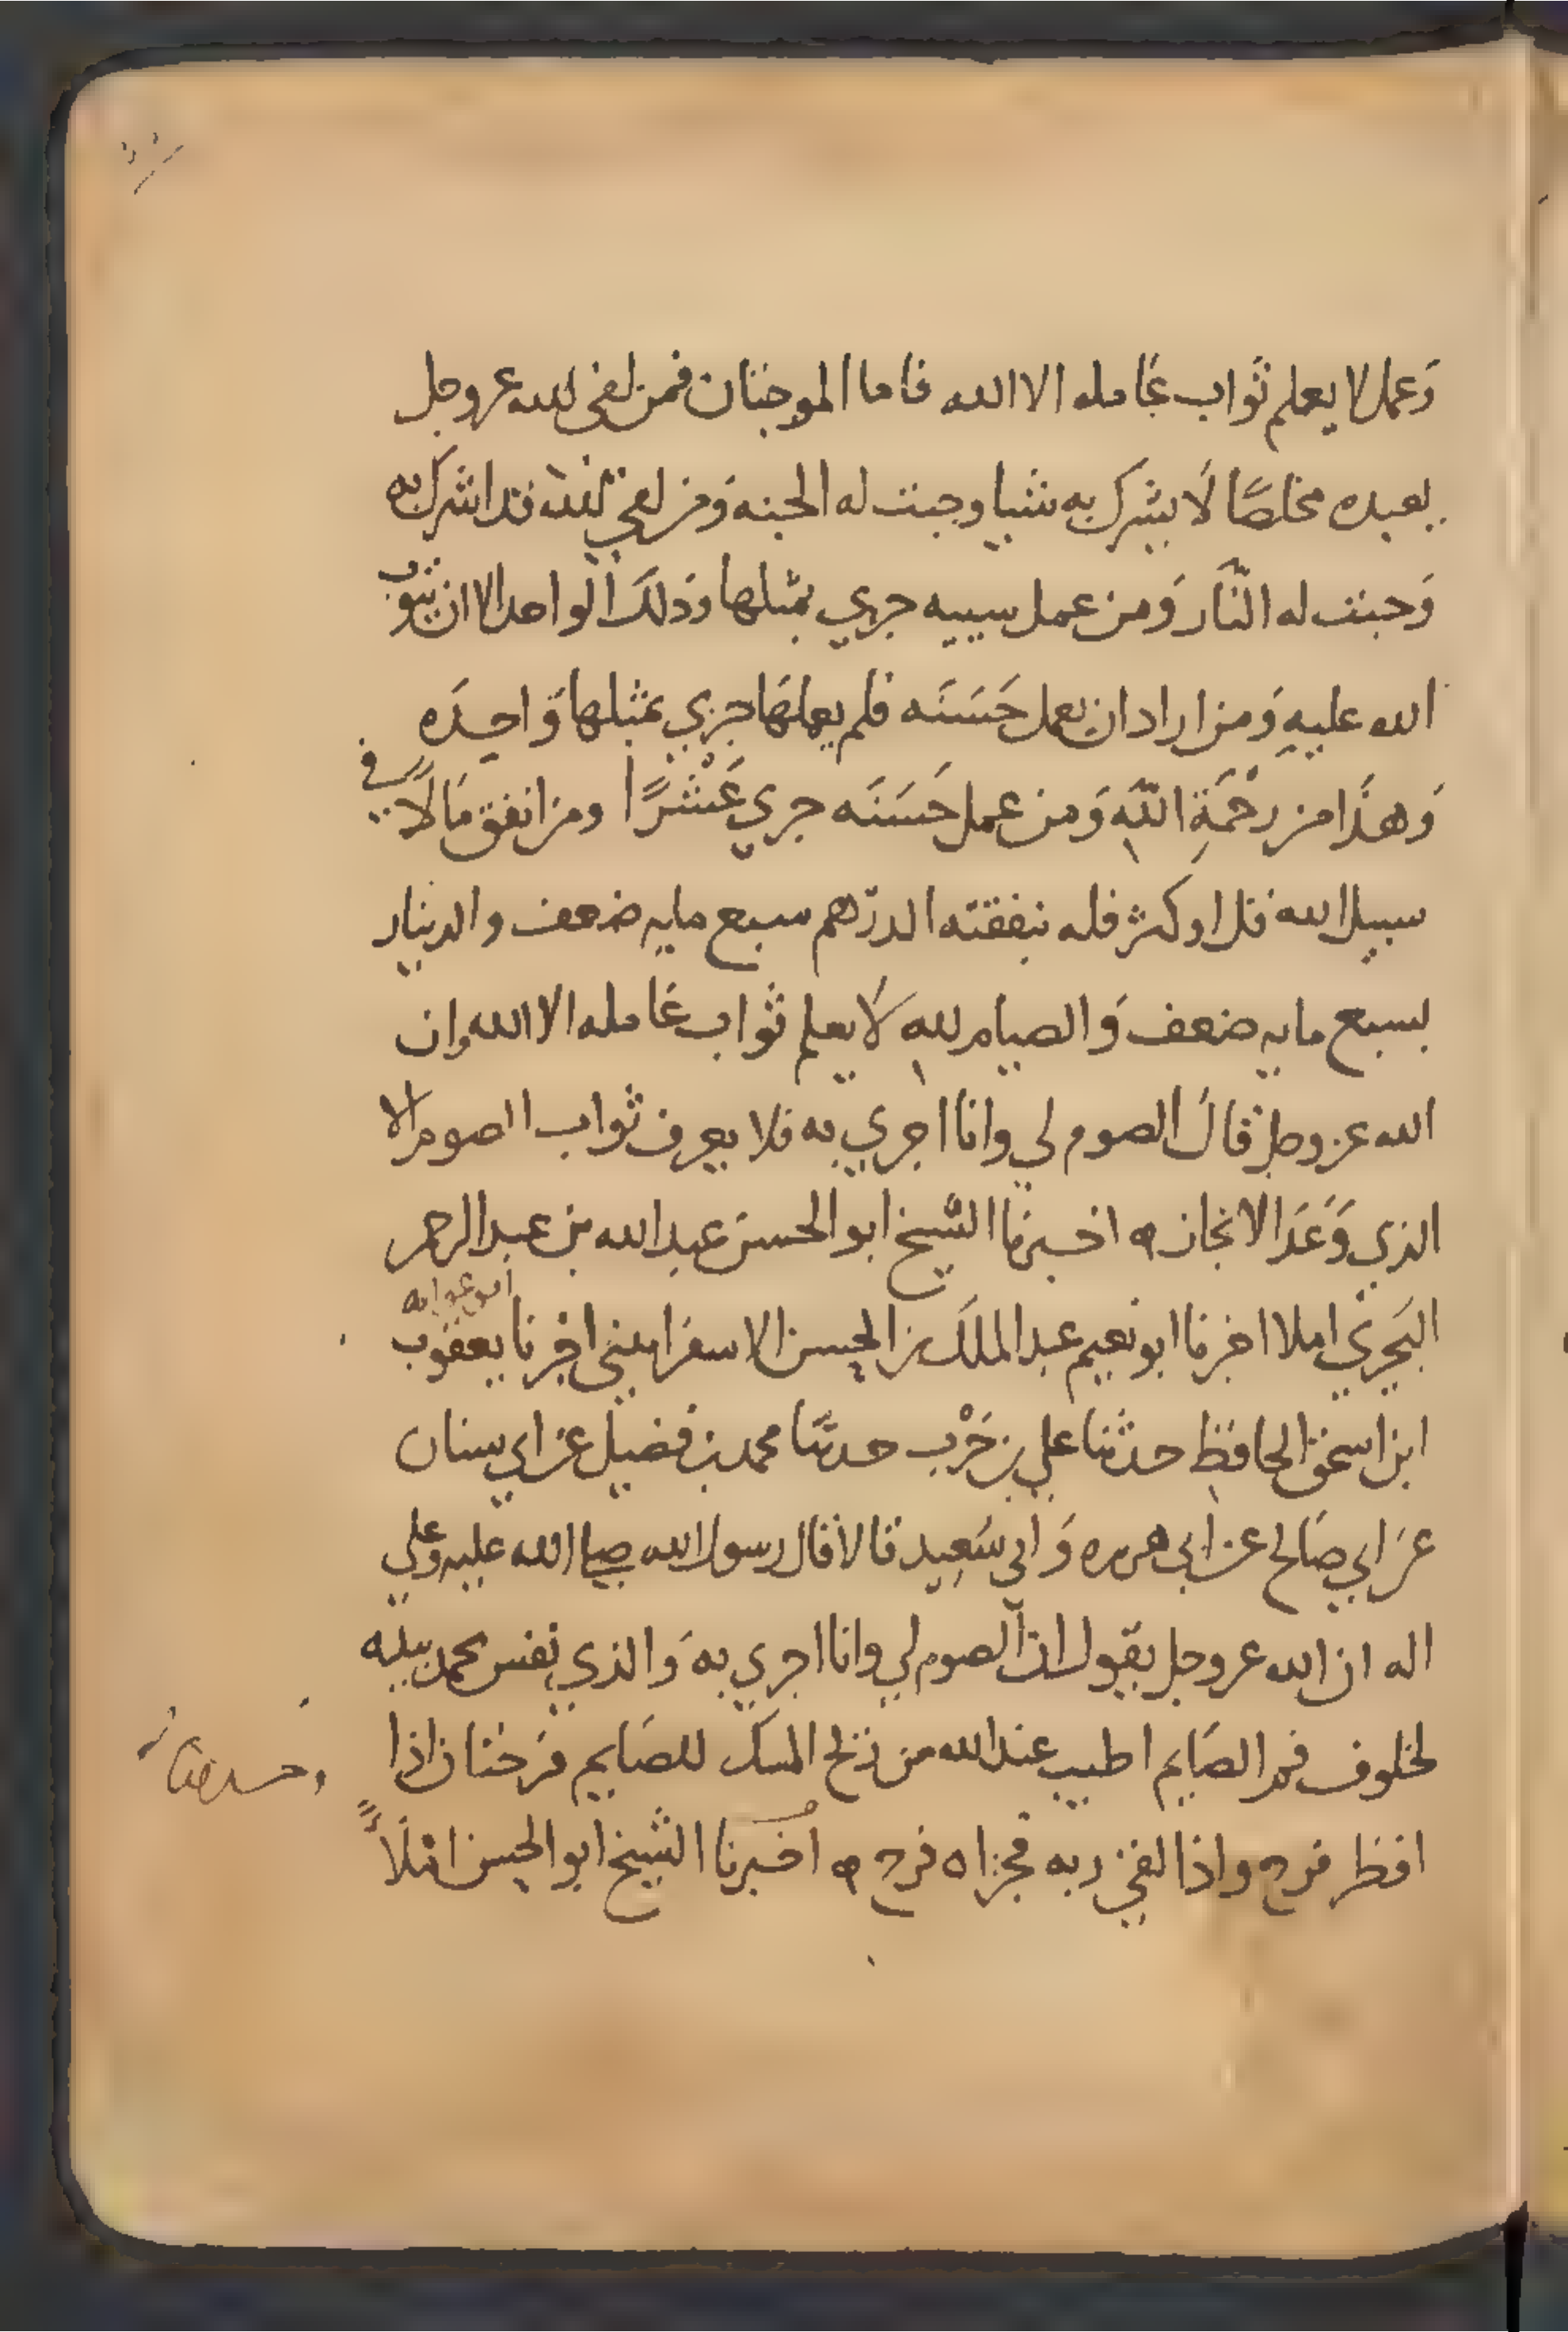 وَعمل لا يعلم ثواب عَامله الا الله فاما الموجبتان فمن لقى الله عز وجل
يعبده مخلصًا لَا يشرك به شيا وجبت له الجنه وَمن لقي الله قد اشرك به
وَجبت له النَّار وَمن عمل سييه جزي بمثلها وَذلكَ الواحد الا ان يتوب
الله عليهِ وَمن اراد ان يعمل حَسَنَه فلم يعملهَا جزي بمثلها وَاحِدَه
وَهذَا من رحْمَةِ اللَّهِ وَمن عمل حَسَنَه جزي عَشْرًا ومن انفق مَالًا في
سبيل الله قل او كثر فله بنفقته الدرهم سبع مايه ضعف والدينار
بسبع مايه ضعف وَالصيام للهِ لَا يعلم ثواب عَامله الا الله وان
الله عز وجل قال الصوم لي وانا اجزي به فلا يعرف ثواب الصوم الا
الذي وَعَدَ الانجاز ه اخبرنا الشيخ ابو الحسن عبد الله بن عبد الرحمن
البَحيري املا اخبرنا ابو نعيم عبد الملك بن الحسن الاسفرايني اخبرنا ابو عوانه يعقوب
ابن اسحق الحافظ حدثنا علي بن حَرْب حدثنا محمد بن فضيل عن ابي سنان
عن ابي صَالح عن ابي هريره وَابي سَعِيد قالا قال رسول الله صلى الله عليه وعلى
اله ان الله عز وجل يقول ان الصوم لي وانا اجزي به وَالذي نفس محمد بيده
لخلوف فم الصَايم اطيب عند الله من ريح المسك للصَايم فرَحتان اذا
افطر فرح واذا لقي ربه فجزاه فرح ه اخبرنا الشيخ ابو الحسن املًا